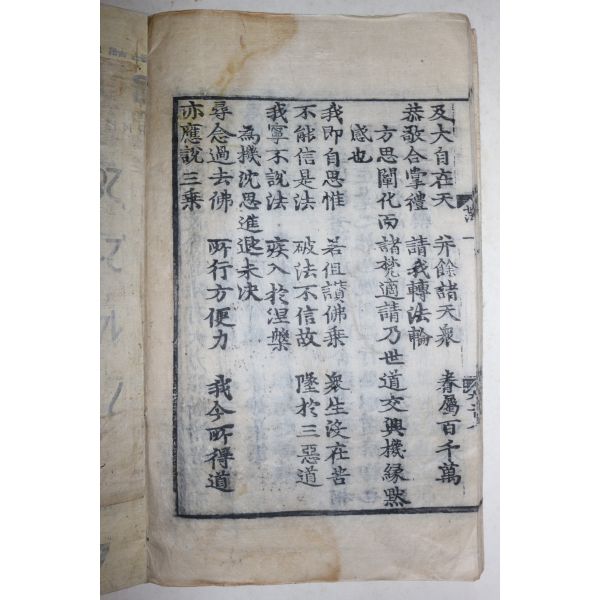 及大自在天 并餘諸天衆 眷屬百千萬
恭敬合掌禮 請我轉法輪
方思闡化而諸梵適請乃世道交興機緣默
感也
我即自思惟 若但讃佛乘 衆生没在苦
不能信是法 破法不信故 墜於三惡道
我寧不說法 疾入於涅槃
爲機沈思進退未決
尋念過去佛 所行方便力 我今所得道
亦應說三乘